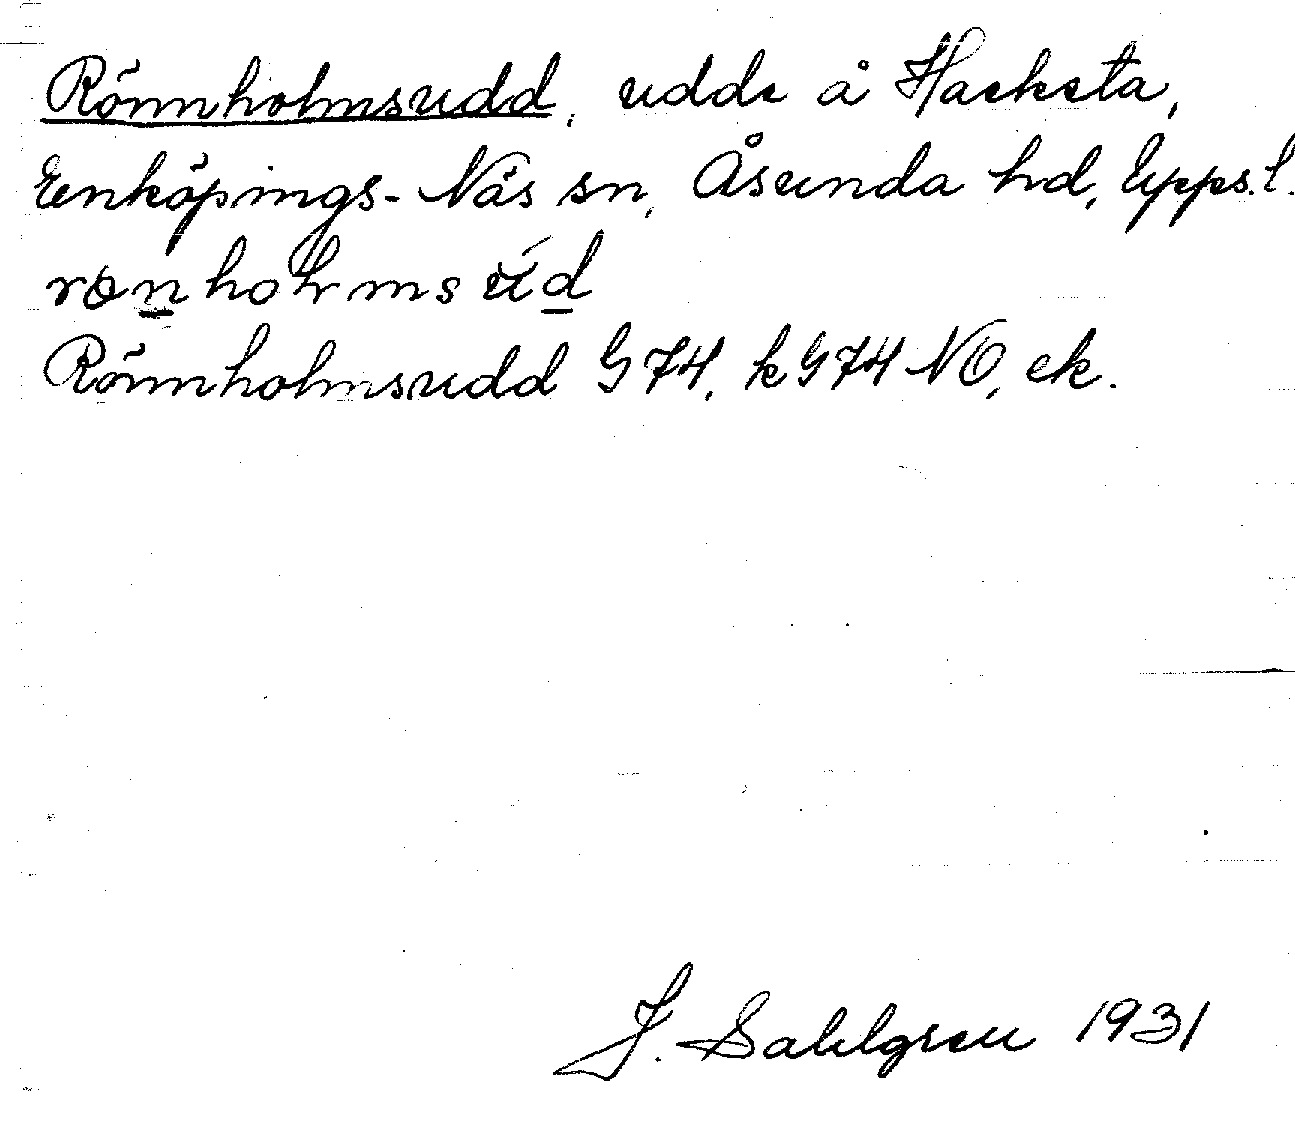 Rönnholmsudd, udde å Hacksta,
Enköpings-Näs sn, Åsunda hd, Upps. l.
Rönnholmsudd G 74, k G 74 NO, ek.
J. Sahlgren 1931